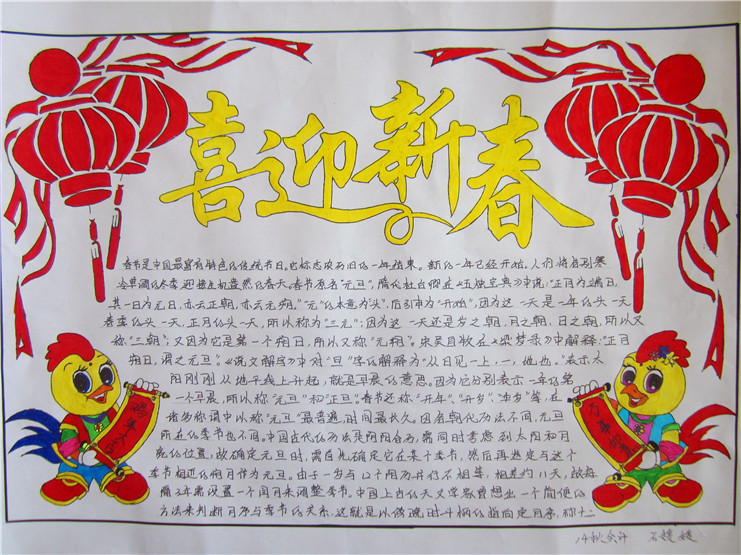 喜迎新春
春节是中国最富有特色的传统节日。它标志农历旧的一年结束。新的一年已经开始。人们将告别寒
冷单调的冬季,迎接生机盎然的春天。春节原名"元旦",隋代杜台卿在《五烛宝典》中说:"正月为端月,
其一日为元日,亦云正朝,亦云元朔。""元"的本意为"头",后引申为"开始",因为这一天是一年的头一天
春季的头一天,正月的头一天,所以称为"三元";因为这一天还是岁之朝,月之朝,日之朝,所以又
称"三朝";又因为它是第一个朔日,所以又称"元朔"。宋吴自牧在《梦梁录》中解释:"正月
朔日,谓之元旦。"《说文解字》中对"旦"字的解释为"从日见一上,一,地也。"表示太
阳刚刚从地平线上升起,就是早晨的意思。因为它分别表示一年的第
一个早晨,所以称"元旦"和"正旦"。春节还称"开年"、"开岁"、"芳岁"等,在
诸多称谓中以称"元旦"最普遍,时间最长久。因各朝代历法不同,元旦
所在的季节也不同。中国古代的历法是阴阳合历,需同时考虑到太阳和月
亮的位置。故确定元旦时,需首先确定它在某个季节,然后再选定与这个
季节相近的朔月作为元旦。由于一岁与12个朔历并仍不相等,相差约11天,故每
隔三年需设置一个闰月来调整季节。中国上古的天文学家曾想出一个简便的
方法来判断月序与季节的关系,这就是以傍晚时斗柄的指向定月序,称十二
鸡年大吉
万事如意
14秋会计 石媛媛